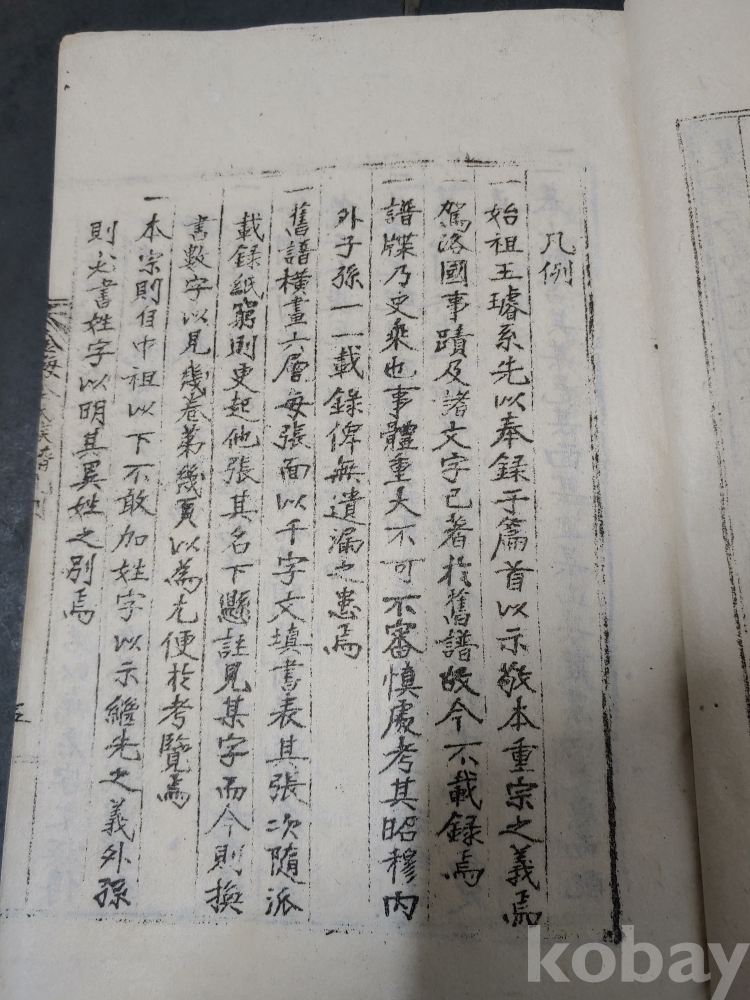 凡例
一始祖王璿系先以奉録于篇首以示敬本重宗之義焉
一駕洛國事蹟及諸文字已著於舊譜故今不載録焉
一譜牒乃史乘也事體重大不可不審慎處考其昭穆內
外子孫一一載錄俾無遺漏之患焉
一舊譜橫畫六層每張面以千字文填書表其張次隨派
載録紙窮則更起他張其名下懸註見某字而今則換
書數字以見幾卷第幾頁以為尤便於考覽焉
一本宗則自中祖以下不敢加姓字以示繼先之義外孫
則必書姓字以明其異姓之別焉
五
kobay